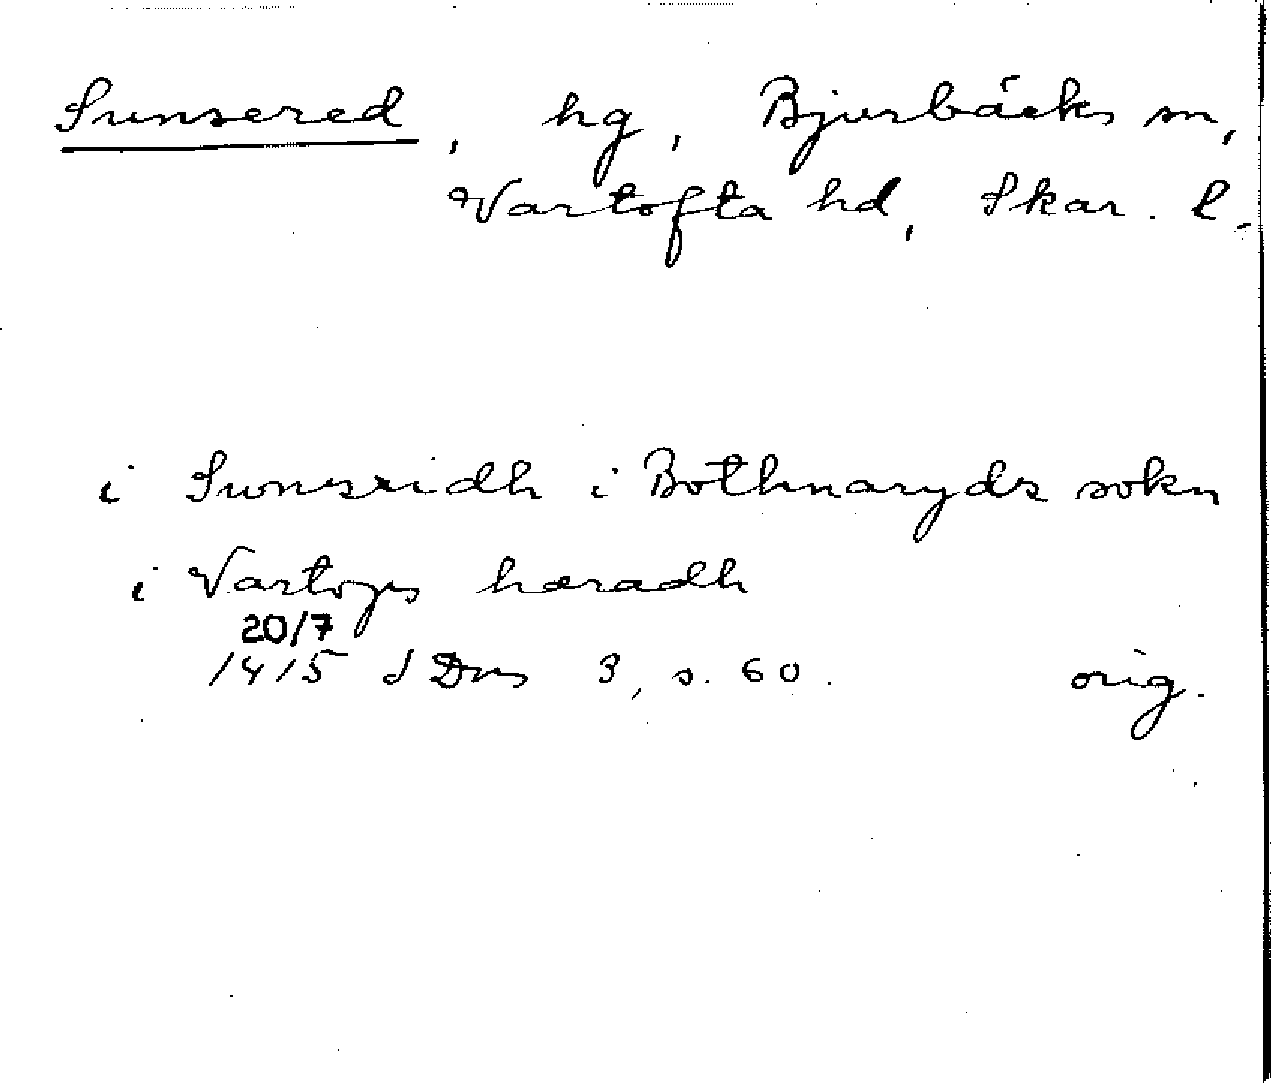 Sunsered, hg, Bjurbäcks sn,
Vartofta hd, Skar. l.
i Swnesridh i Bothnaryds sokn
i Vartops hæradh
20/7
1415 SDns 3, s. 60. orig.